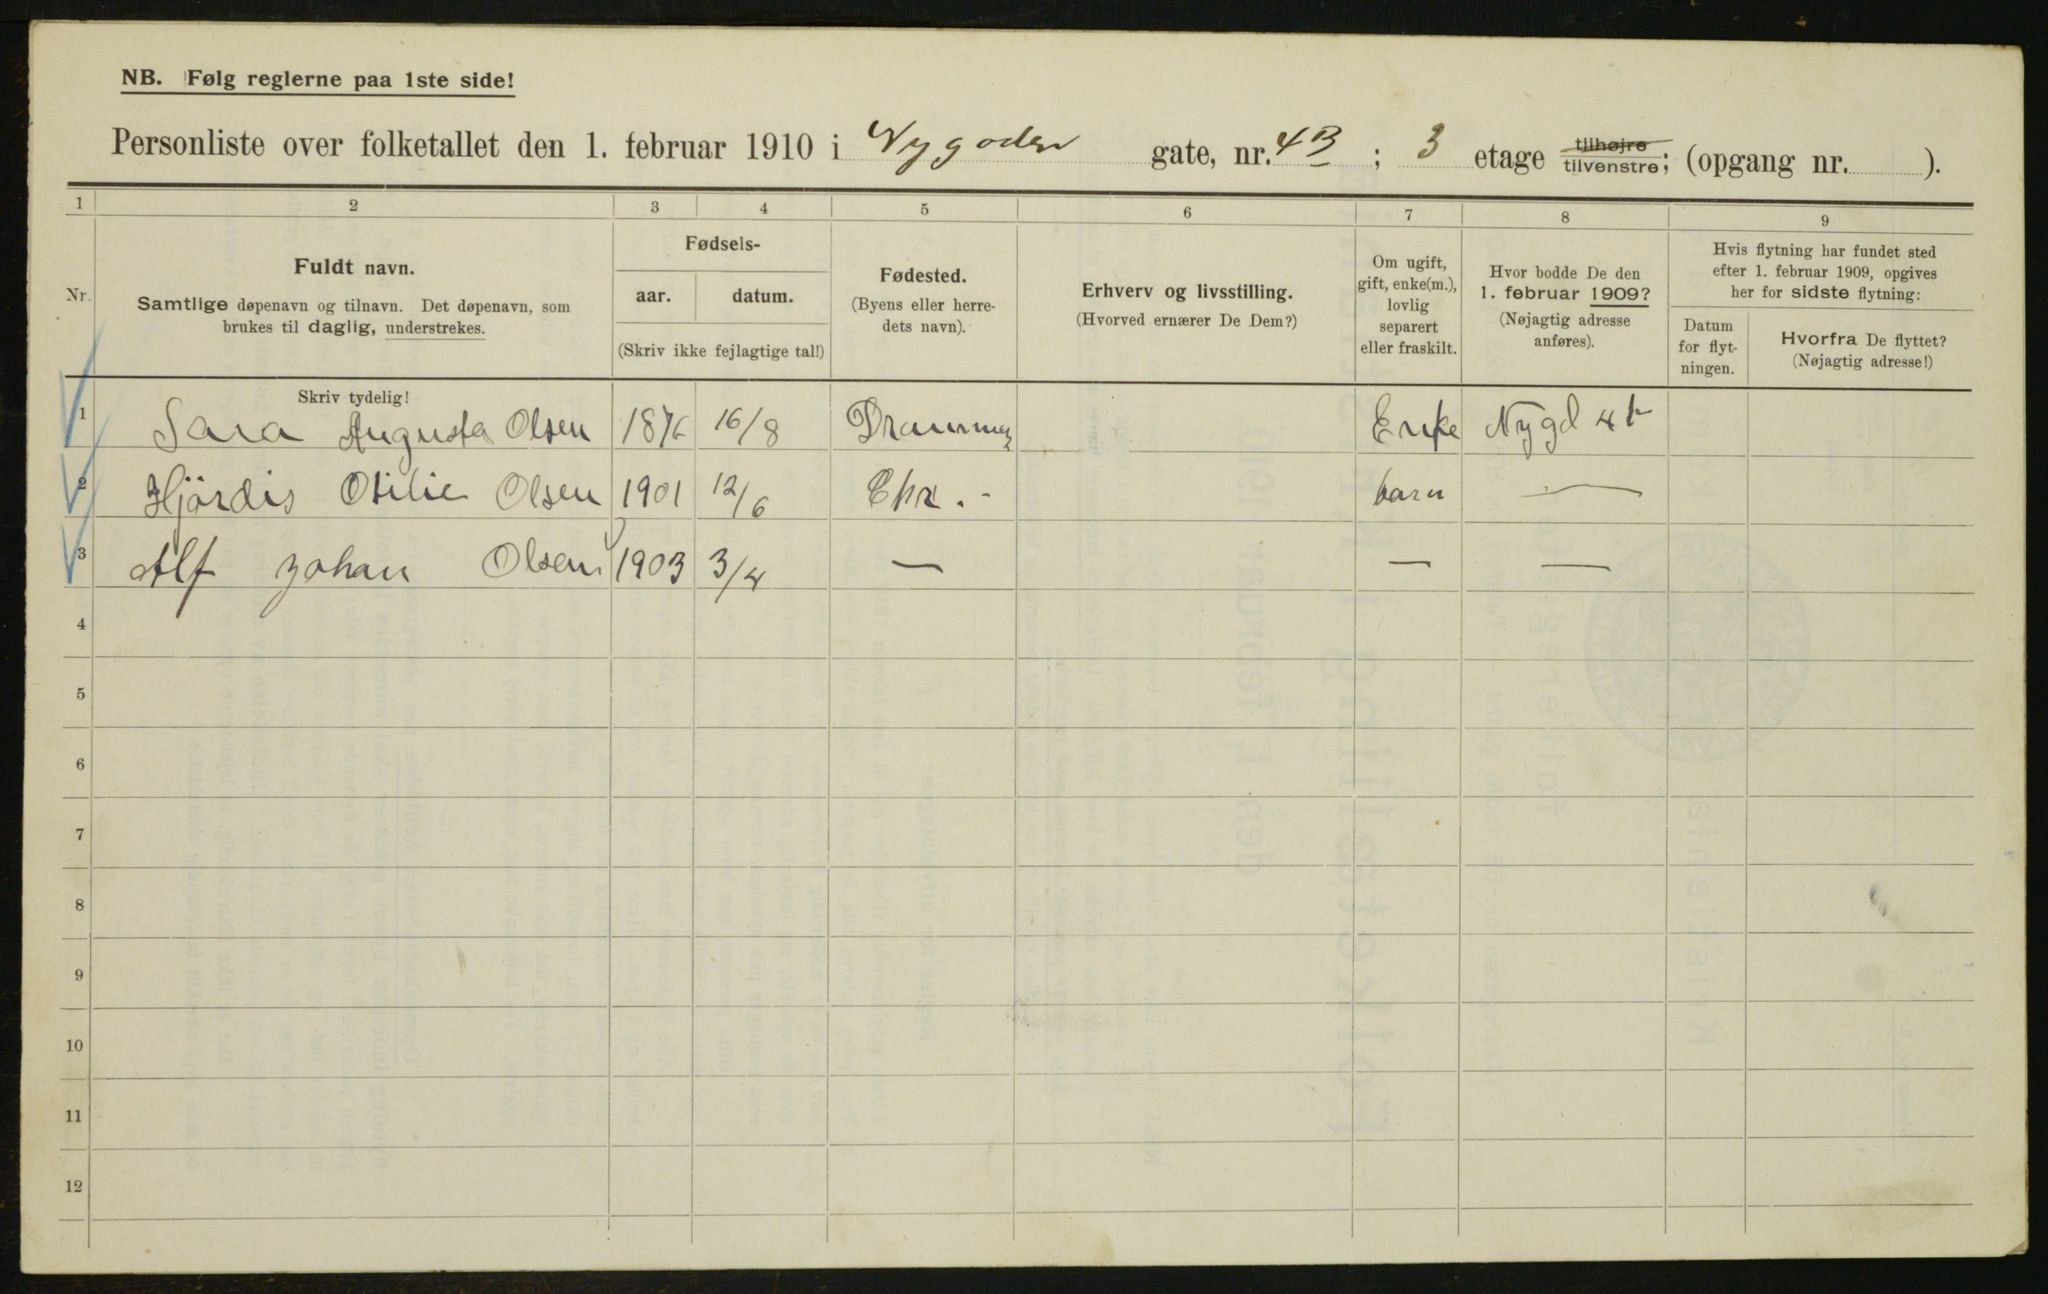 NB. Følg reglerne paa 1ste side!
Personliste over folketallet den 1. februar 1910 i Nygaden gate, nr. 4B ; 3 etage tilhøjre tilvenstre; (opgang nr. ).
1 2 3 4 5 6 7 8 9
Nr. Fuldt navn.
Samtlige døpenavn og tilnavn. Det døpenavn, som
brukes til daglig, understrekes.
Fødsels-
aar. datum.
(Skriv ikke fejlagtige tal!)
Fødested.
(Byens eller herre-
dets navn).
Erhverv og livsstilling.
(Hvorved ernærer De Dem?)
Om ugift,
gift, enke(m.),
lovlig
separert
eller fraskilt.
Hvor bodde De den
1. februar 1909?
(Nøjagtig adresse
anføres).
Hvis flytning har fundet sted
efter 1. februar 1909, opgives
her for sidste flytning:
Datum
for flyt-
ningen.
Hvorfra De flyttet?
(Nøjagtig adresse!)
Skriv tydelig!
1 Sara Augusta Olsen 1876 16/8 Drammen Enke Nygd 4b
2 Hjördis Otilie Olsen 1901 12/6 Chr. - barn —
3 Alf Johan Olsen 1903 3/4 — — —
4
5
6
7
8
9
10
11
12